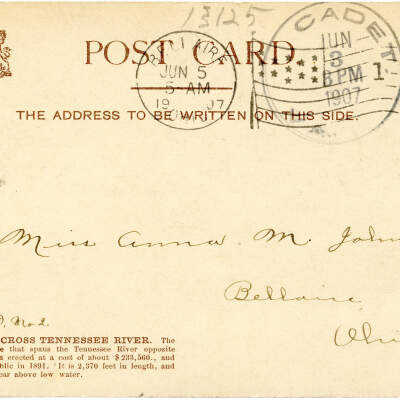 13125
POST CARD
BELLAIRE
JUN 5
5-AM
1907
OHIO
CADET
JUN
3
8 PM
1907
1
THE ADDRESS TO BE WRITTEN ON THIS SIDE.
Miss Anna M. John
Bellaire
Ohi
No 2.
CROSS TENNESSEE RIVER. The
e that spans the Tennessee River opposite
s erected at a cost of about $233,560., and
blic in 1891. It is 2,370 feet in length, and
ear above low water.